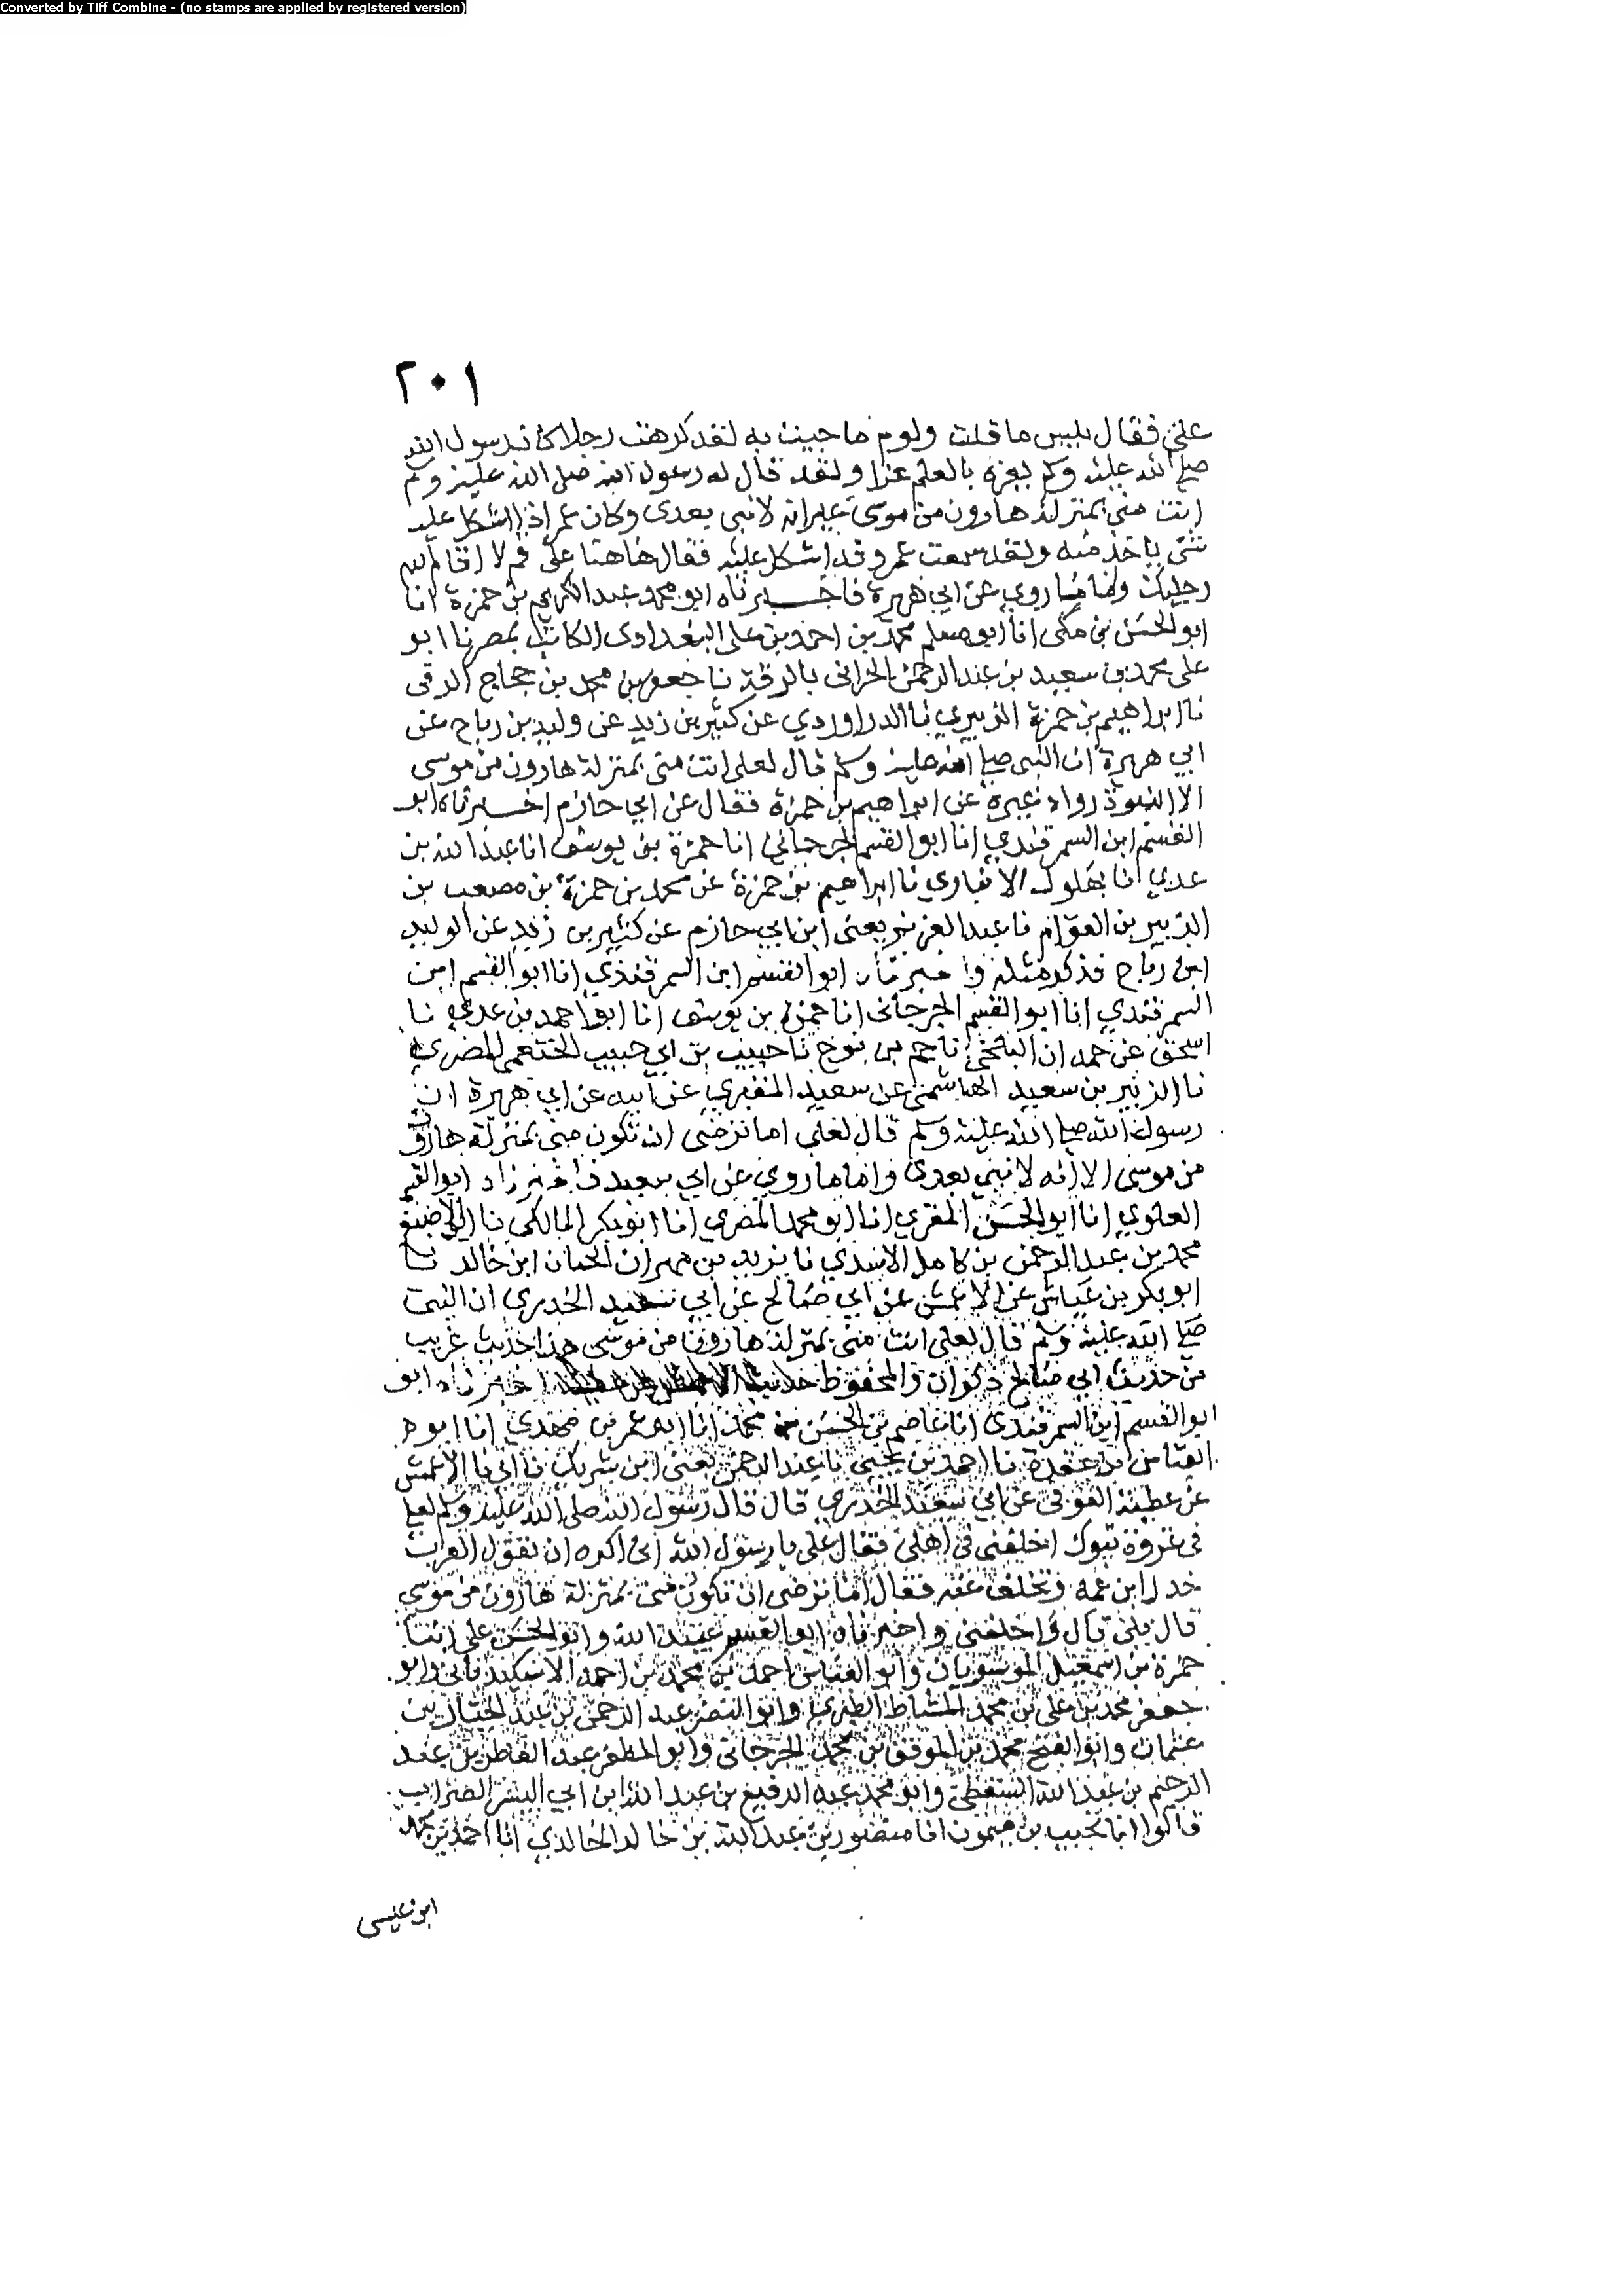 Converted by Tiff Combine - (no stamps are applied by registered version)
٢٠١
علي فقال بيس ما قلت ولوم ما جيت به لقد كرهت رجلا كان رسول الله
صلى الله عليه وسلم يغره بالعلم غرا ولقد قال له رسول الله صلى الله عليه وسلم
انت مني بمنزلة هارون من موسى غير انه لا نبي بعدي وكان عمر اذا اشكل عليه
شي ياخذ منه ولقد سمعت عمر وقد اشكل عليه فقال هاهنا علي قم لا اقام الله
رجليك واما ما روي عن ابي هريرة فاخبرناه ابو محمد عبد الكريم بن حمزة انا
ابو الحسن بن مكي انا ابو مسلم محمد بن احمد بن علي البغدادي الكاتب بمصر نا ابو
علي محمد بن سعيد بن عبد الرحمن الحراني بالرقة نا جعفر بن محمد بن حجاج الرقي
نا ابراهيم بن حمزة الزبيري نا الدراوردي عن كثير بن زيد عن وليد بن رباح عن
ابي هريرة ان النبي صلى الله عليه وسلم قال لعلي انت مني بمنزلة هارون من موسى
الا النبوة رواه غيره عن ابراهيم بن حمزة فقال عن ابي حازم اخبرناه ابو
القسم ابن السمرقندي انا ابو القسم الجرجاني انا حمزة بن يوسف انا عبد الله بن
عدي انا بهلول الانباري نا ابراهيم بن حمزة عن محمد بن حمزة بن مصعب بن
الزبير بن العوام نا عبد العزيز يعني ابن ابي حازم عن كثير بن زيد عن الوليد
ابن رباح فذكر مثله واخبرنا ابو القسم ابن السمرقندي انا ابو القسم ابن
السمرقندي انا ابو القسم الجرجاني انا حمزة بن يوسف انا ابو احمد بن عدي نا
اسحق عن حمدان البلخي نا حم بن نوح نا حبيب بن ابي حبيب الخثعمي المصري
نا الزبير بن سعيد الهاشمي عن سعيد المقبري عن ابيه عن ابي هريرة ان
رسول الله صلى الله عليه وسلم قال لعلي اما ترضى ان تكون مني بمنزلة هارون
من موسى الا انه لا نبي بعدي واما ما روي عن ابي سعيد فاخبرناه ابو القسم
العلوي انا ابو الحسن المقري انا ابو محمد المصري انا ابو بكر المالكي نا ابو الاصبغ
محمد بن عبد الرحمن بن كامل الاسدي نا يزيد بن مهران الخباز ابن خالد نا
ابو بكر بن عياش عن الاعمش عن ابي صالح عن ابي سعيد الخدري ان النبي
صلى الله عليه وسلم قال لعلي انت مني بمنزلة هارون من موسى هذا حديث غريب
من حديث ابي صالح ذكوان والمحفوظ حديث اخبرناه ابو
ابو القسم ابن السمرقندي انا عاصم بن الحسن بن محمد انا ابو عمر بن مهدي انا ابو
العباس بن عقدة نا احمد بن يحيى نا عبد الرحمن يعني ابن شريك نا ابي نا الاعمش
عن عطية العوفي عن ابي سعيد الخدري قال قال رسول الله صلى الله عليه وسلم لعلي
في غزوة تبوك اخلفني في اهلي فقال علي يا رسول الله اني اكره ان يقول العرب
خذل ابن عمه وتخلف عنه فقال اما ترضى ان تكون مني بمنزلة هارون من موسى
قال بلى قال فاخلفني واخبرناه ابو القسم عبيد الله وابو الحسن علي ابنا
حمزة بن اسمعيل الموسويان وابو العباس احمد بن محمد بن احمد وابو
جعفر محمد بن علي بن محمد المشاط الطبري وابو النضر عبد الرحمن بن عبد الجبار بن
عثمان وابو الفتح محمد بن الموفق بن محمد الجرجاني وابو المظفر عبد الفاطر بن عبد
الرحيم بن عبد الله السقطي وابو محمد عبد الرفيع بن عبد الله ابن ابي اليسر الضراب
قالوا انا نجيب بن ميمون انا منصور بن عبد الله بن خالد الخالدي انا احمد بن محمد
ابن عيسى